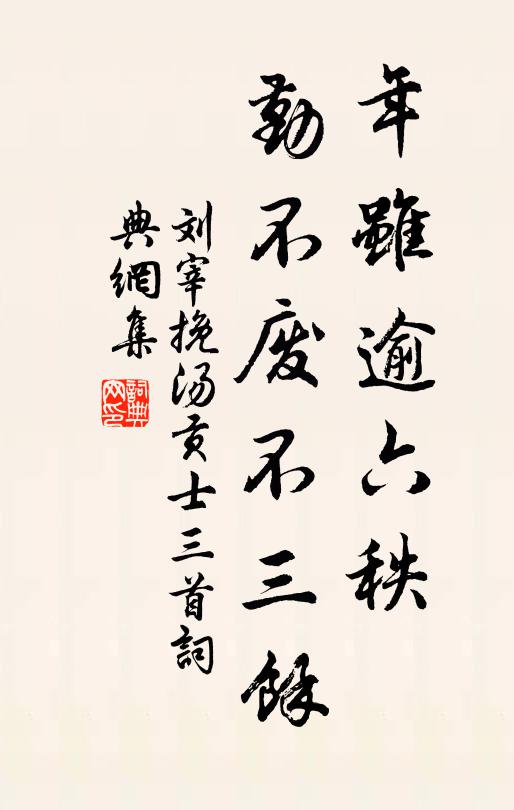 年雖逾六秩
勤不废不三餘
刘宰挽汤贡士三首詞
典網集
詞典网印